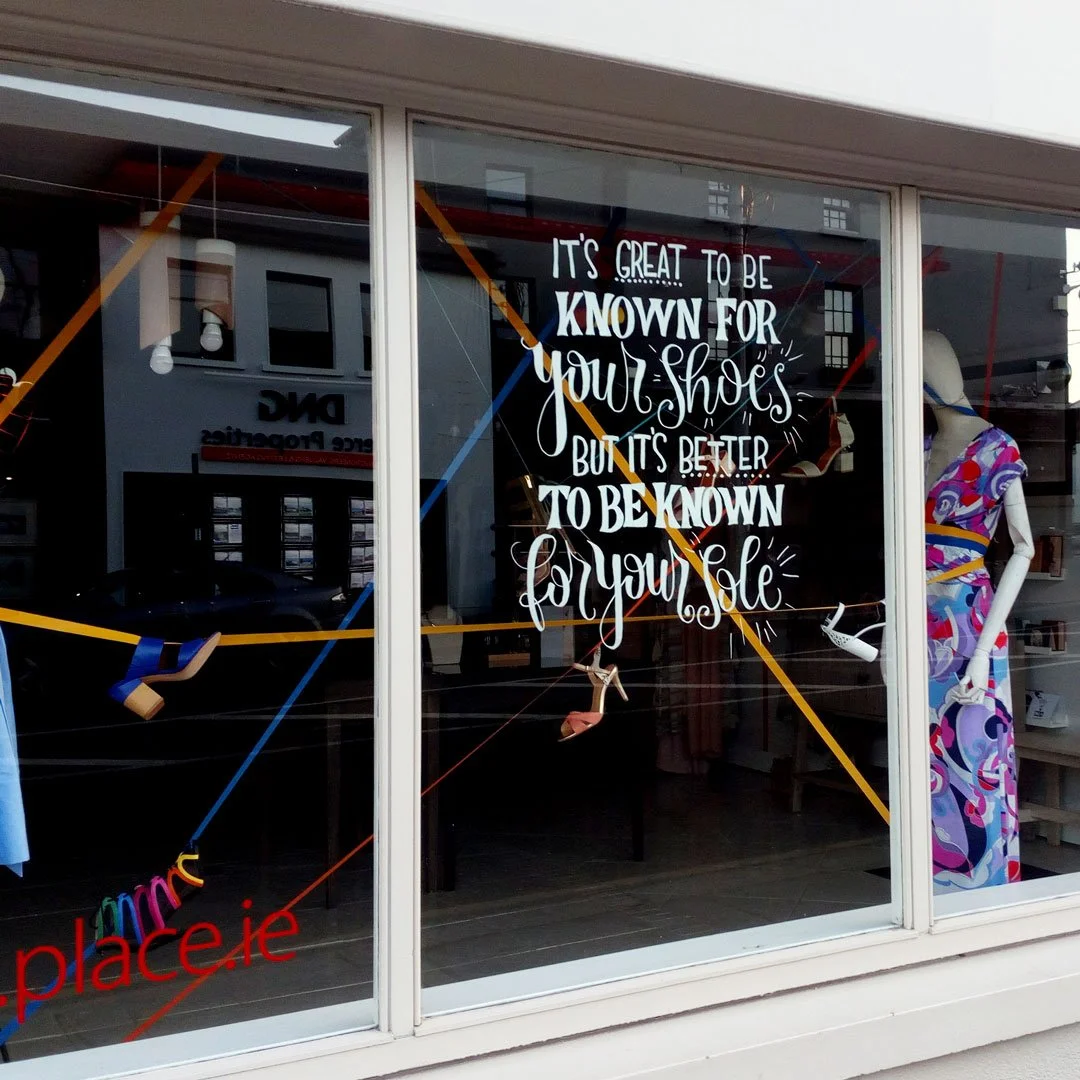 IT'S GREAT TO BE
KNOWN FOR
your shoes
BUT IT'S BETTER
TO BE KNOWN
for your sole
DNG
erce Properties
.place.ie